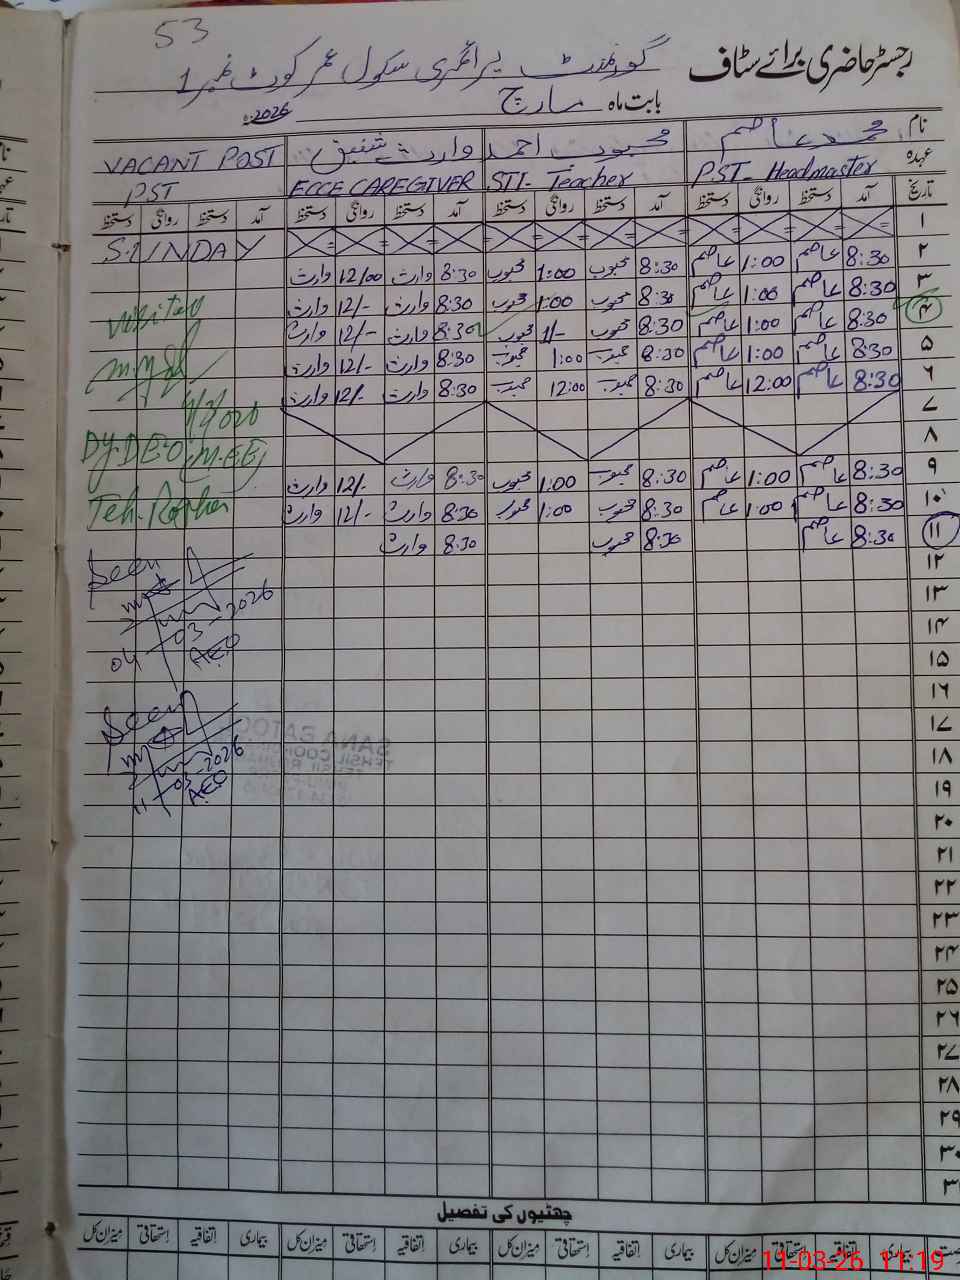 53
رجسٹر حاضری برائے سٹاف
گورنمنٹ پرائمری سکول عمر کوٹ نمبر 1
بابت ماہ مارچ 2026ء
نام محمد عاصم محبوب احمد وارث شفیق VACANT POST
عہدہ PST- Headmaster STI- Teacher ECCE CAREGIVER PST
تاریخ آمد دستخط روانگی دستخط آمد دستخط روانگی دستخط آمد دستخط روانگی دستخط آمد دستخط روانگی دستخط
۱ SUNDAY
۲ 8:30 عاصم 1:00 عاصم 8:30 محبوب 1:00 محبوب 8:30 وارث 12/00 وارث
۳ 8:30 عاصم 1:00 عاصم 8:30 محبوب 1:00 محبوب 8:30 وارث 12/- وارث
۴ 8:30 عاصم 1:00 عاصم 8:30 محبوب 1/- محبوب 8:30 وارث 12/- وارث
۵ 8:30 عاصم 1:00 عاصم 8:30 محبوب 1:00 محبوب 8:30 وارث 12/- وارث
۶ 8:30 عاصم 12:00 عاصم 8:30 محبوب 12:00 محبوب 8:30 وارث 12/- وارث
۷
۸
۹ 8:30 عاصم 1:00 عاصم 8:30 محبوب 1:00 محبوب 8:30 وارث 12/- وارث
۱۰ 8:30 عاصم 1:00 عاصم 8:30 محبوب 1:00 محبوب 8:30 وارث 12/- وارث
۱۱ 8:30 عاصم 8:30 محبوب 8:30 وارث
visited
Dy.DEO (M.EE)
Teh. Rojhan
۱۲
۱۳
۱۴
۱۵
۱۶
۱۷
۱۸
۱۹
۲۰
۲۱
۲۲
۲۳
۲۴
۲۵
۲۶
۲۷
۲۸
۲۹
۳۰
۳۱
Seen
04-03-2026
AEO
Seen
11-03-2026
AEO
چھٹیوں کی تفصیل
بیماری اتفاقیہ استحقاقی میزان کل بیماری اتفاقیہ استحقاقی میزان کل بیماری اتفاقیہ استحقاقی میزان کل بیماری اتفاقیہ استحقاقی میزان کل
11-03-26 11:19